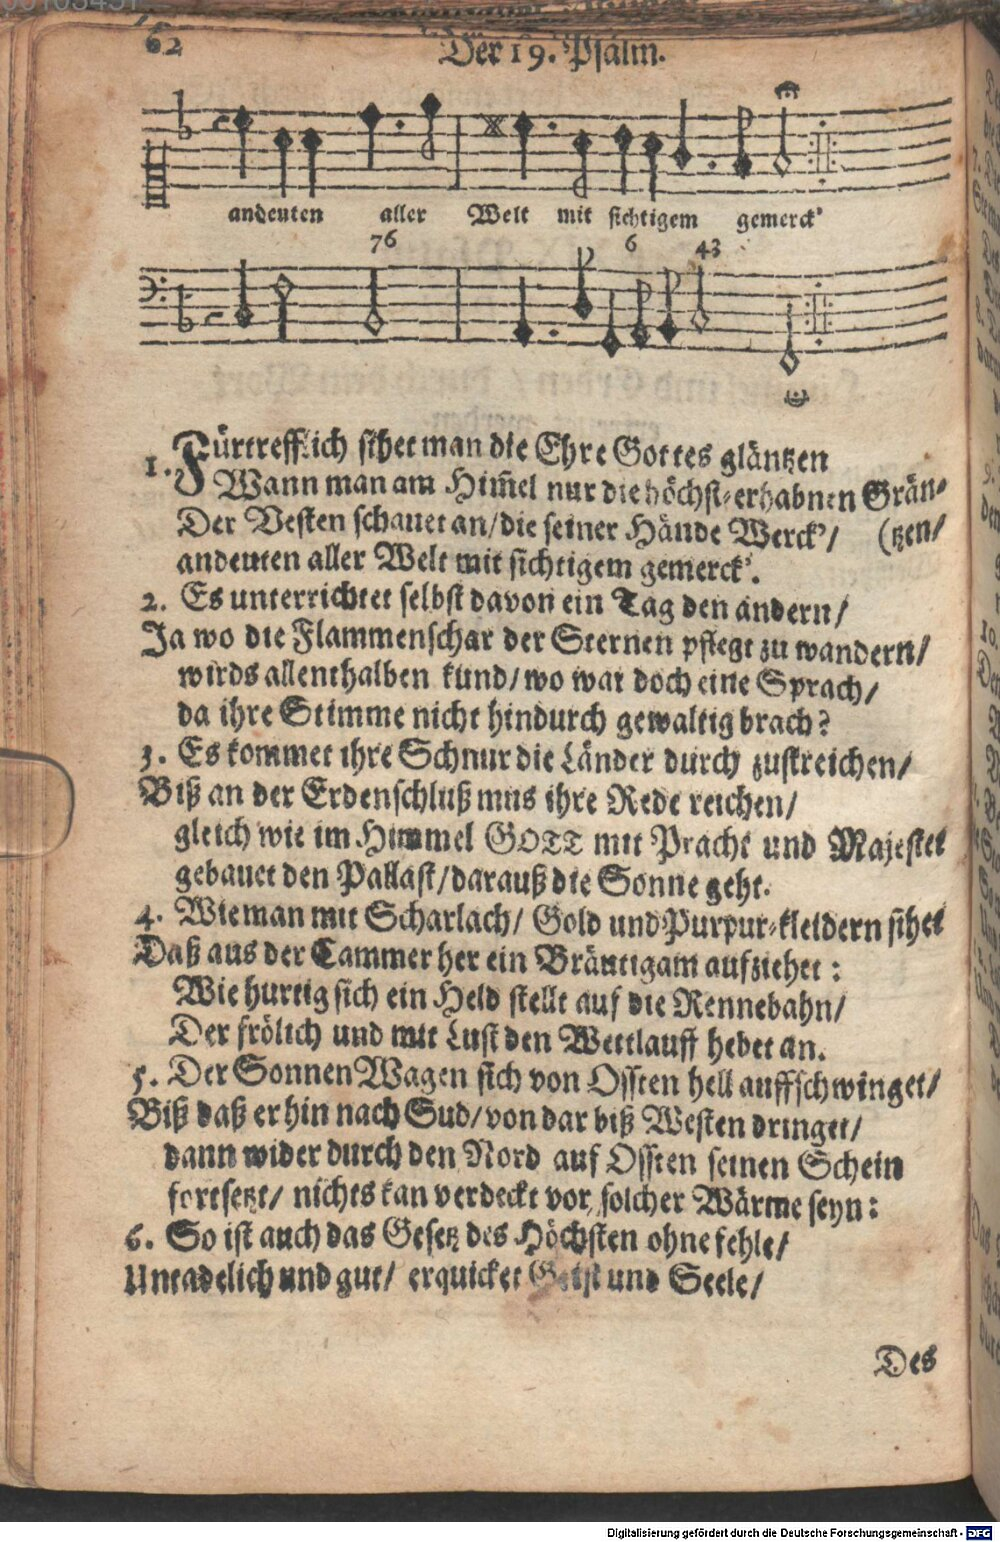 62
Der 19. Psalm.
andeuten aller Welt mit sichtigem gemerck'
76 6 43
1. Fürtrefflich sihet man die Ehre Gottes gläntzen
Wann man am Him̃el nur die höchst-erhabnen Grän-
Der Vesten schauet an/die seiner Hände Werck'/ (tzen/
andeuten aller Welt mit sichtigem gemerck'.
2. Es unterrichtet selbst davon ein Tag den andern/
Ja wo die Flammenschar der Sternen pflegt zu wandern/
wirds allenthalben kund/wo war doch eine Sprach/
da ihre Stimme nicht hindurch gewaltig brach?
3. Es kommet ihre Schnur die Länder durch zustreichen/
Biß an der Erdenschluß mus ihre Rede reichen/
gleich wie im Himmel GOTT mit Pracht und Majestet
gebauet den Pallast/darauß die Sonne geht.
4. Wie man mit Scharlach/ Gold und Purpur-kleidern sihet
Daß aus der Cammer her ein Bräutigam aufziehet:
Wie hurtig sich ein Held stellt auf die Rennebahn/
Der frölich und mit Lust den Wettlauff hebet an.
5. Der Sonnen Wagen sich von Ossten hell auffschwinget/
Biß daß er hin nach Sud/von dar biß Westen dringet/
dann wider durch den Nord auf Ossten seinen Schein
fortsetzt/ nichts kan verdeckt vor solcher Wärme seyn:
6. So ist auch das Gesetz des Höchsten ohne fehle/
Untadelich und gut/ erquicket Geist und Seele/
Des
Digitalisierung gefördert durch die Deutsche Forschungsgemeinschaft - DFG